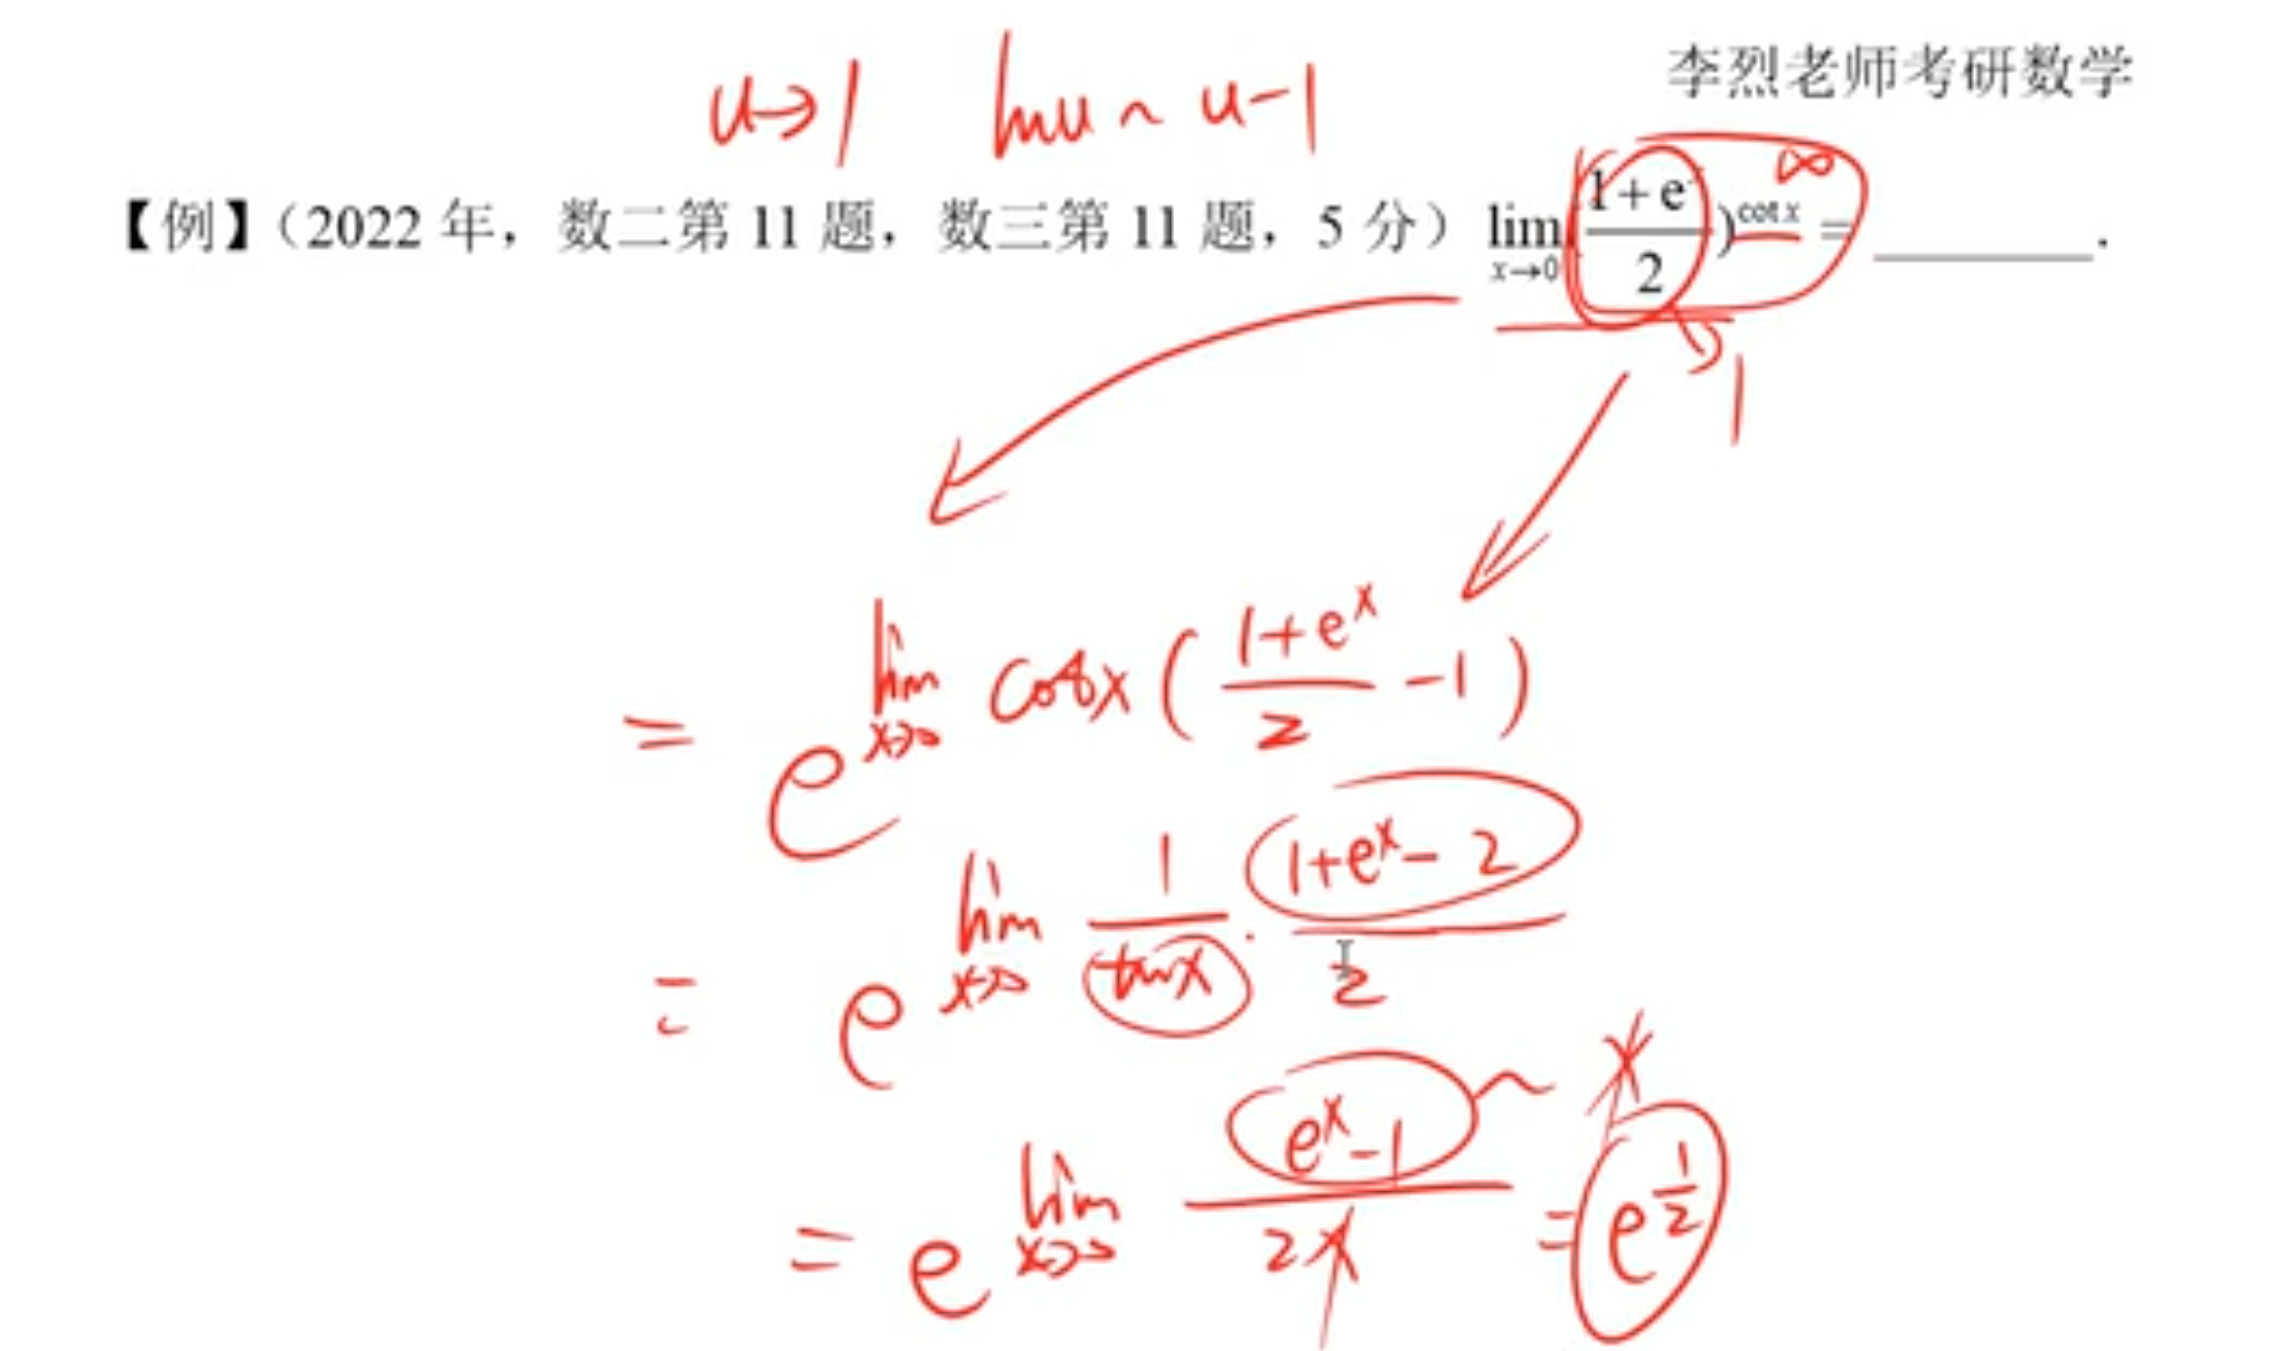 李烈老师考研数学
u→1 lnu ~ u-1
【例】（2022 年，数二第 11 题，数三第 11 题，5 分） lim_{x→0} (\frac{1+e^x}{2})^{cot x} = ________.
∞
1
= e^{lim_{x→0} cotx (\frac{1+e^x}{2} -1)}
= e^{lim_{x→0} \frac{1}{tanx} · \frac{1+e^x-2}{2}}
= e^{lim_{x→0} \frac{e^x-1}{2x}} = e^{\frac{1}{2}}
~ x